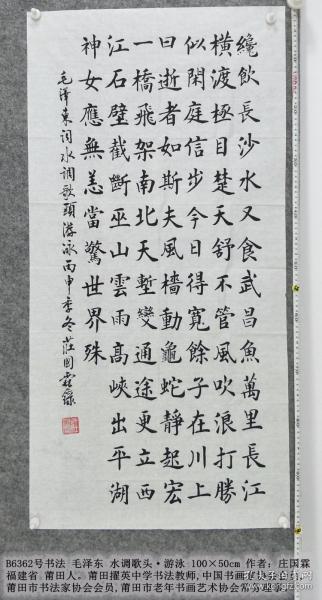 纔飲長沙水又食武昌魚萬里長江
橫渡極目楚天舒不管風吹浪打勝
似閑庭信步今日得寬餘子在川上
曰逝者如斯夫風檣動龜蛇靜起宏
一橋飛架南北天塹變通途更立西
江石壁截斷巫山雲雨高峽出平湖
神女應無恙當驚世界殊
毛澤東詞水調歌頭游泳丙申季冬莊國霖錄
B6362号书法 毛泽东 水调歌头·游泳 100×50cm 作者：庄国霖
福建省 莆田人。莆田擢英中学书法教师,中国书画
莆田市书法家协会会员,莆田市老年书画艺术协会常务理事